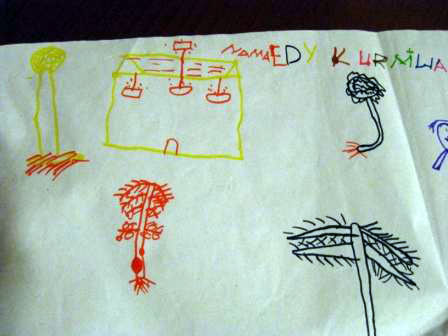 NAMAEDY KURNiWA